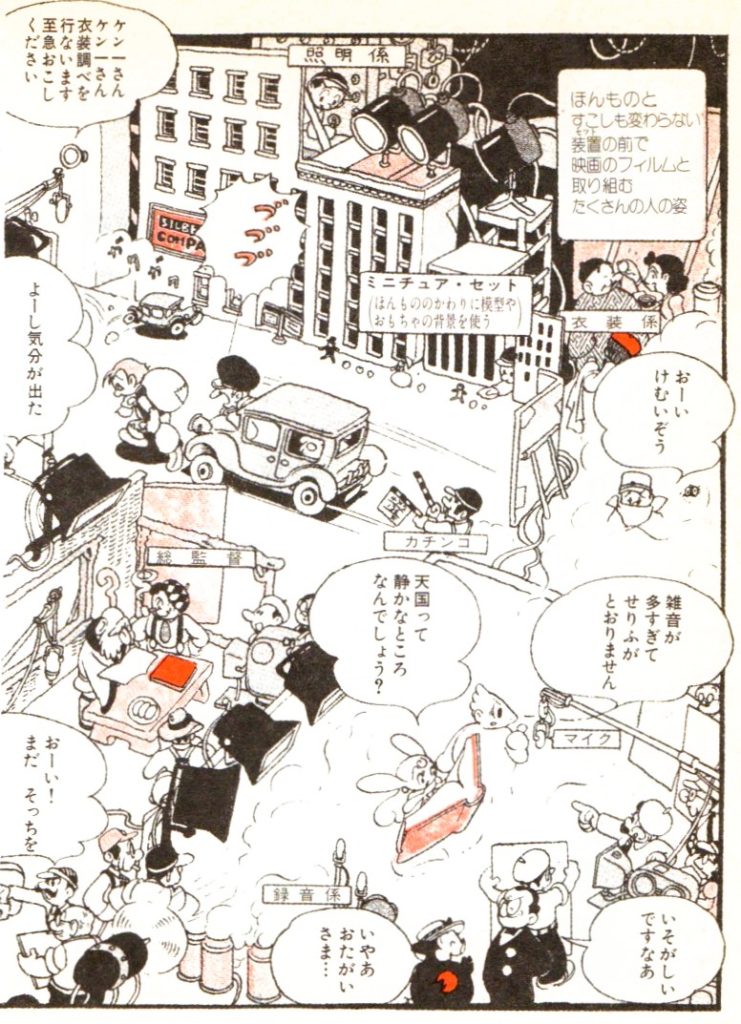 照明係
ほんものと
すこしも変わらない
セット
装置の前で
映画のフィルムと
取り組む
たくさんの人の姿
ケン一さん
ケン一さん
衣装調べを
行ないます
至急おこし
ください
SILBE
COMPA
ブ…
ブ…
ブ…
ミニチュア・セット
(ほんもののかわりに模型や
おもちゃの背景を使う)
衣装係
よーし気分が出た
おーい
けむいぞう
カチンコ
総監督
天国って
静かなところ
なんでしょう?
雑音が
多すぎて
せりふが
とおりません
マイク
おーい!
まだ そっちを
録音係
いやあ
おたがい
さま…
いそがしい
ですなあ